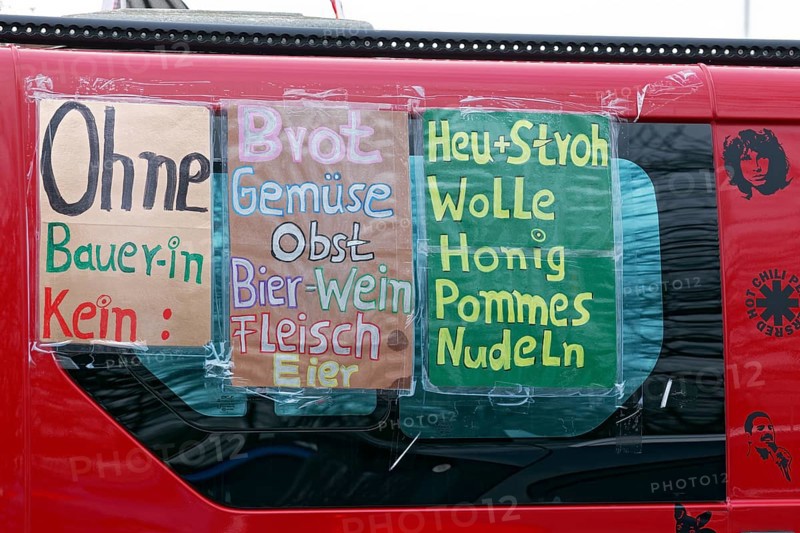 Ohne
Bauer-in
Kein :
Brot
Gemüse
Obst
Bier-Wein
Fleisch
Eier
Heu+Stroh
Wolle
Honig
Pommes
Nudeln
RED HOT CHILI PEPPERS
PHOTO12